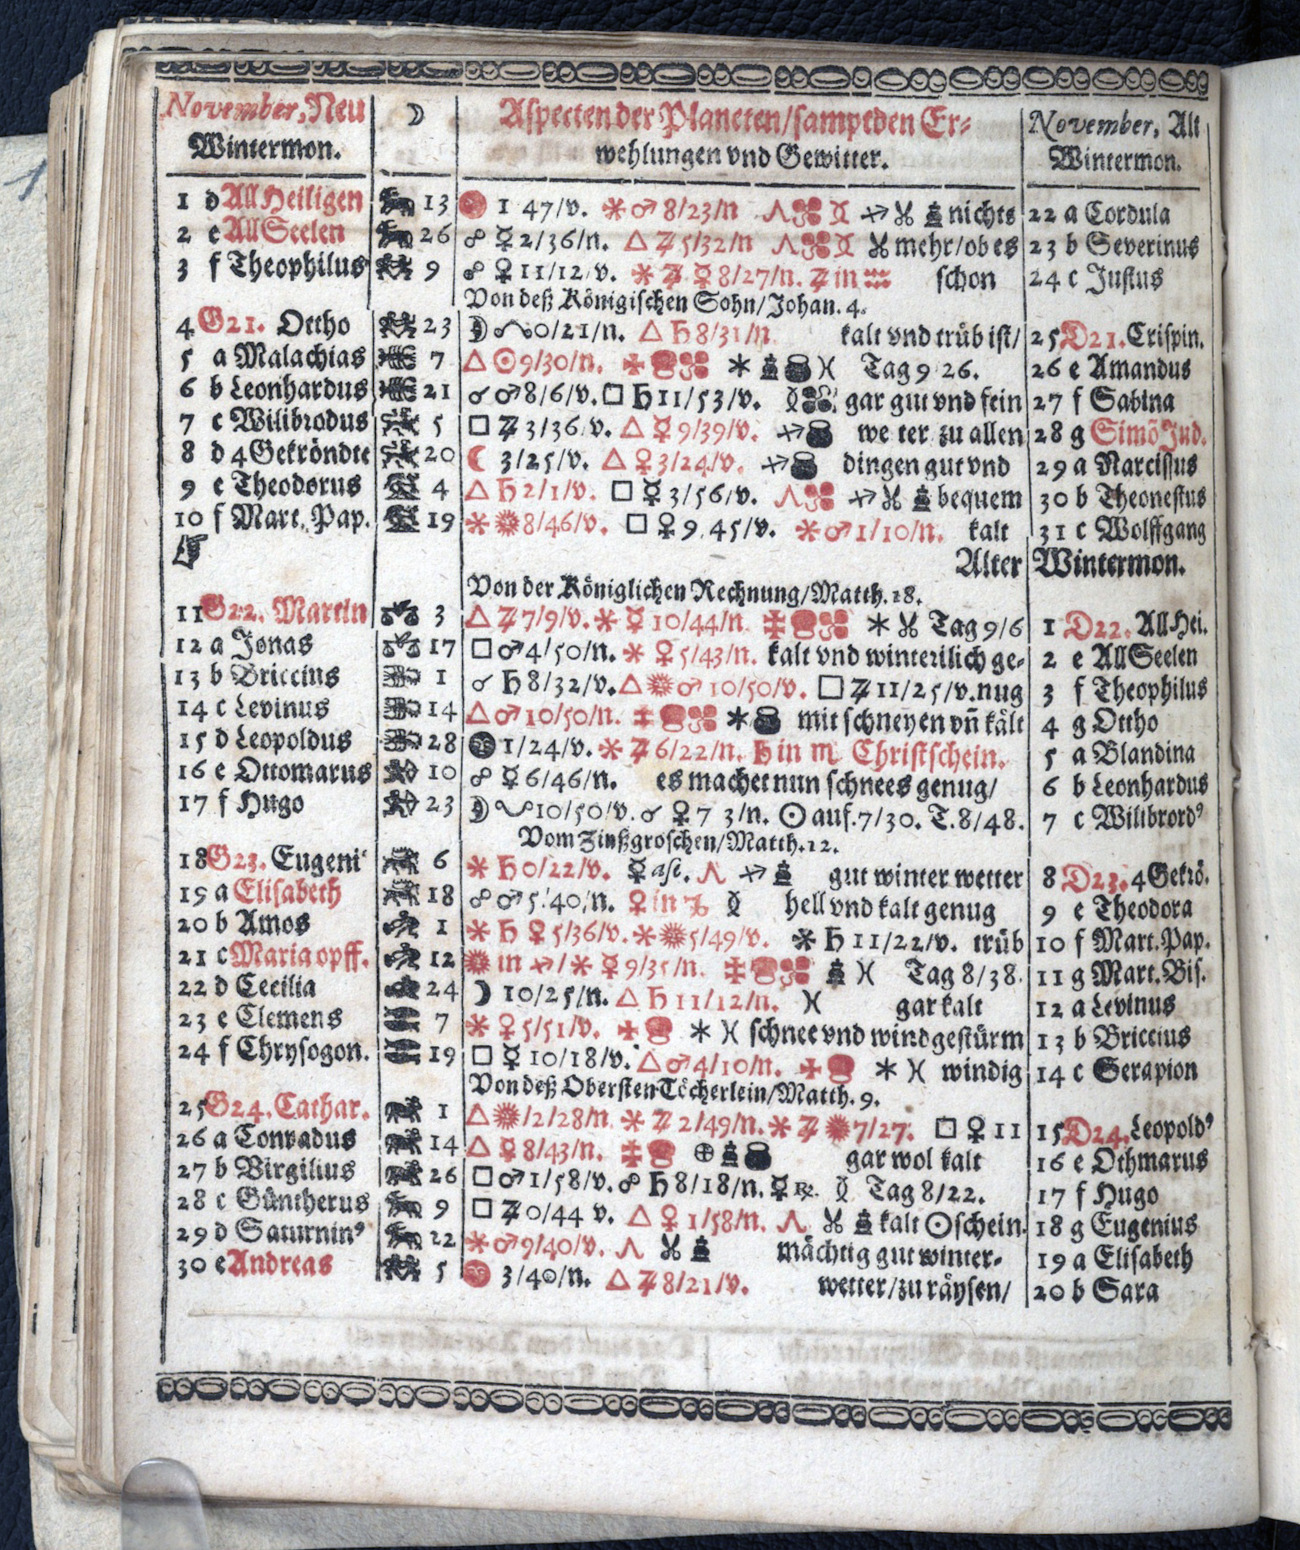 November, Neu ☽ Aspecten der Planeten/ sampt den Er- November, Alt
Wintermon. wehlungen vnd Gewitter. Wintermon.
1 d All Heiligen 13 1 47/v. ⚹ ♂ 8/23/n ♐ nichts 22 a Cordula
2 e All Seelen 26 ☍ ☿ 2/36/n. △ ♃ 5/32/n mehr/ob es 23 b Severinus
3 f Theophilus 9 ☍ ♀ 11/12/v. ⚹ ♃ ☿ 8/27/n. ♃ in ♒ schon 24 c Justus
Von deß Königischen Sohn/Johan. 4.
4 G21. Ottho 23 0/21/n. △ ♄ 8/31/n kalt vnd trüb ist/ 25 D21. Crispin.
5 a Malachias 7 △ ☉ 9/30/n. ♓ Tag 9 26. 26 e Amandus
6 b Leonhardus 21 ☌ ♂ 8/6/v. □ ♄ 11/53/v. gar gut vnd fein 27 f Sabina
7 c Wilibrodus 5 □ ♃ 3/36 v. △ ☿ 9/39/v. ♐ we ter zu allen 28 g Simõ Jud.
8 d 4 Gekröndte 20 ☾ 3/25/v. △ ♀ 3/24/v. ♐ dingen gut vnd 29 a Narcissus
9 e Theodorus 4 △ ♄ 2/1/v. □ ☿ 3/56/v. ♐ bequem 30 b Theonestus
10 f Mart. Pap. 19 ⚹ 8/46/v. □ ♀ 9.45/v. ⚹ ♂ 1/10/n. kalt 31 c Wolffgang
Alter Wintermon.
Von der Königlichen Rechnung/Matth. 18.
11 G22. Martin 3 △ ♃ 7/9/v. ⚹ ☿ 10/44/n. Tag 9/6 1 D22. All Hei.
12 a Jonas 17 □ ♂ 4/50/n. ⚹ ♀ 5/43/n. kalt vnd winterilich ge- 2 e All Seelen
13 b Briccius 1 ☌ ♄ 8/32/v. △ ♂ 10/50/v. □ ♃ 11/25/v. nug 3 f Theophilus
14 c Levinus 14 △ ♂ 10/50/n. mit schneyen vñ kält 4 g Ottho
15 d Leopoldus 28 1/24/v. ⚹ ♃ 6/22/n. ♄ in ♏ Christschein. 5 a Blandina
16 e Ottomarus 10 ☍ ☿ 6/46/n. es machet nun schnees genug/ 6 b Leonhardus
17 f Hugo 23 10/50/v. ☌ ♀ 7 3/n. ☉ auf. 7/30. T. 8/48. 7 c Wilibrordꝰ
Vom Zinßgroschen/Matth. 12.
18 G23. Eugeni 6 ⚹ ♄ 0/22/v. ☿ ase. ♐ gut winter wetter 8 D23. 4 Gekrö.
19 a Elisabeth 18 ☍ ♂ 5/40/n. ♀ in ♑ hell vnd kalt genug 9 e Theodora
20 b Amos 1 ⚹ ♄ ♀ 5/36/v. ⚹ 5/49/v. ⚹ ♄ 11/22/v. trüb 10 f Mart. Pap.
21 c Maria opff. 12 in ♐/ ⚹ ☿ 9/35/n. ♓ Tag 8/38. 11 g Mart. Bis.
22 d Cecilia 24 ☽ 10/25/n. △ ♄ 11/12/n. ♓ gar kalt 12 a Levinus
23 e Clemens 7 ⚹ ♀ 5/51/v. ♓ schnee vnd windgestürm 13 b Briccius
24 f Chrysogon. 19 □ ☿ 10/18/v. △ ♂ 4/10/n. ♓ windig 14 c Serapion
Von deß Obersten Töcherlein/Matth. 9.
25 G24. Cathar. 1 △ /2/28/n. ⚹ ♃ 2/49/n. ⚹ ♃ 7/27. □ ♀ 11 15 D24. Leopoldꝰ
26 a Conradus 14 △ ☿ 8/43/n. ⊕ gar wol kalt 16 e Othmarus
27 b Virgilius 26 □ ♂ 1/58/v. ☍ ♄ 8/18/n. ☿ ℞. Tag 8/22. 17 f Hugo
28 c Güntherus 9 □ ♃ 0/44 v. △ ♀ 1/58/n. kalt ☉schein. 18 g Eugenius
29 d Saturninꝰ 22 ⚹ ♂ 9/40/v. mächtig gut winter- 19 a Elisabeth
30 e Andreas 5 3/40/n. △ ♃ 8/21/v. wetter/zu räysen/ 20 b Sara